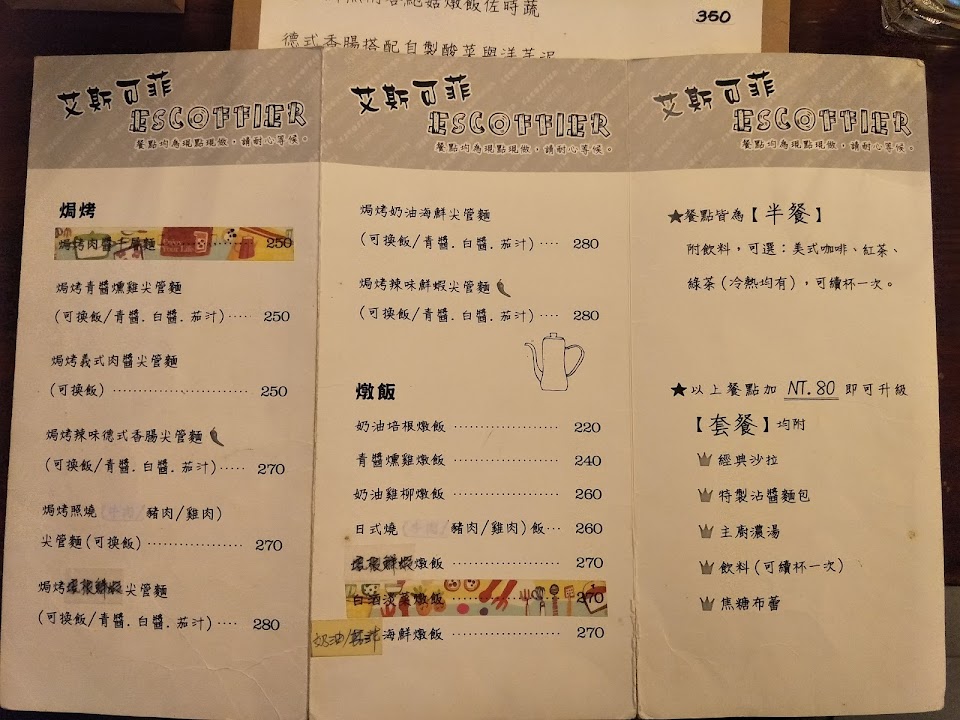 燉飯佐時蔬
350
德式香腸搭配自製酸菜與洋芋泥
艾斯可菲
ESCOFFIER
餐點均為現點現做，請耐心等候。
焗烤
焗烤肉醬千層麵 250
焗烤青醬燻雞尖管麵
(可換飯/青醬.白醬.茄汁)····· 250
焗烤義式肉醬尖管麵
(可換飯) ························ 250
焗烤辣味德式香腸尖管麵
(可換飯/青醬.白醬.茄汁)····· 270
焗烤照燒 豬肉/雞肉)
尖管麵(可換飯) ················· 270
焗烤 尖管麵
(可換飯/青醬.白醬.茄汁)···· 280
艾斯可菲
ESCOFFIER
餐點均為現點現做，請耐心等候。
焗烤奶油海鮮尖管麵
(可換飯/青醬.白醬.茄汁)···· 280
焗烤辣味鮮蝦尖管麵
(可換飯/青醬.白醬.茄汁)···· 280
燉飯
奶油培根燉飯 ··················· 220
青醬燻雞燉飯 ··················· 240
奶油雞柳燉飯 ··················· 260
日式燒 (牛肉/豬肉/雞肉)飯··· 260
燉飯 ··················· 270
白酒淡菜燉飯 270
奶油/ 海鮮燉飯 ··················· 270
艾斯可菲
ESCOFFIER
餐點均為現點現做，請耐心等候。
★餐點皆為【半餐】
附飲料，可選：美式咖啡、紅茶、
綠茶(冷熱均有)，可續杯一次。
★以上餐點加 NT.80 即可升級
【套餐】均附
經典沙拉
特製沾醬麵包
主廚濃湯
飲料(可續杯一次)
焦糖布蕾